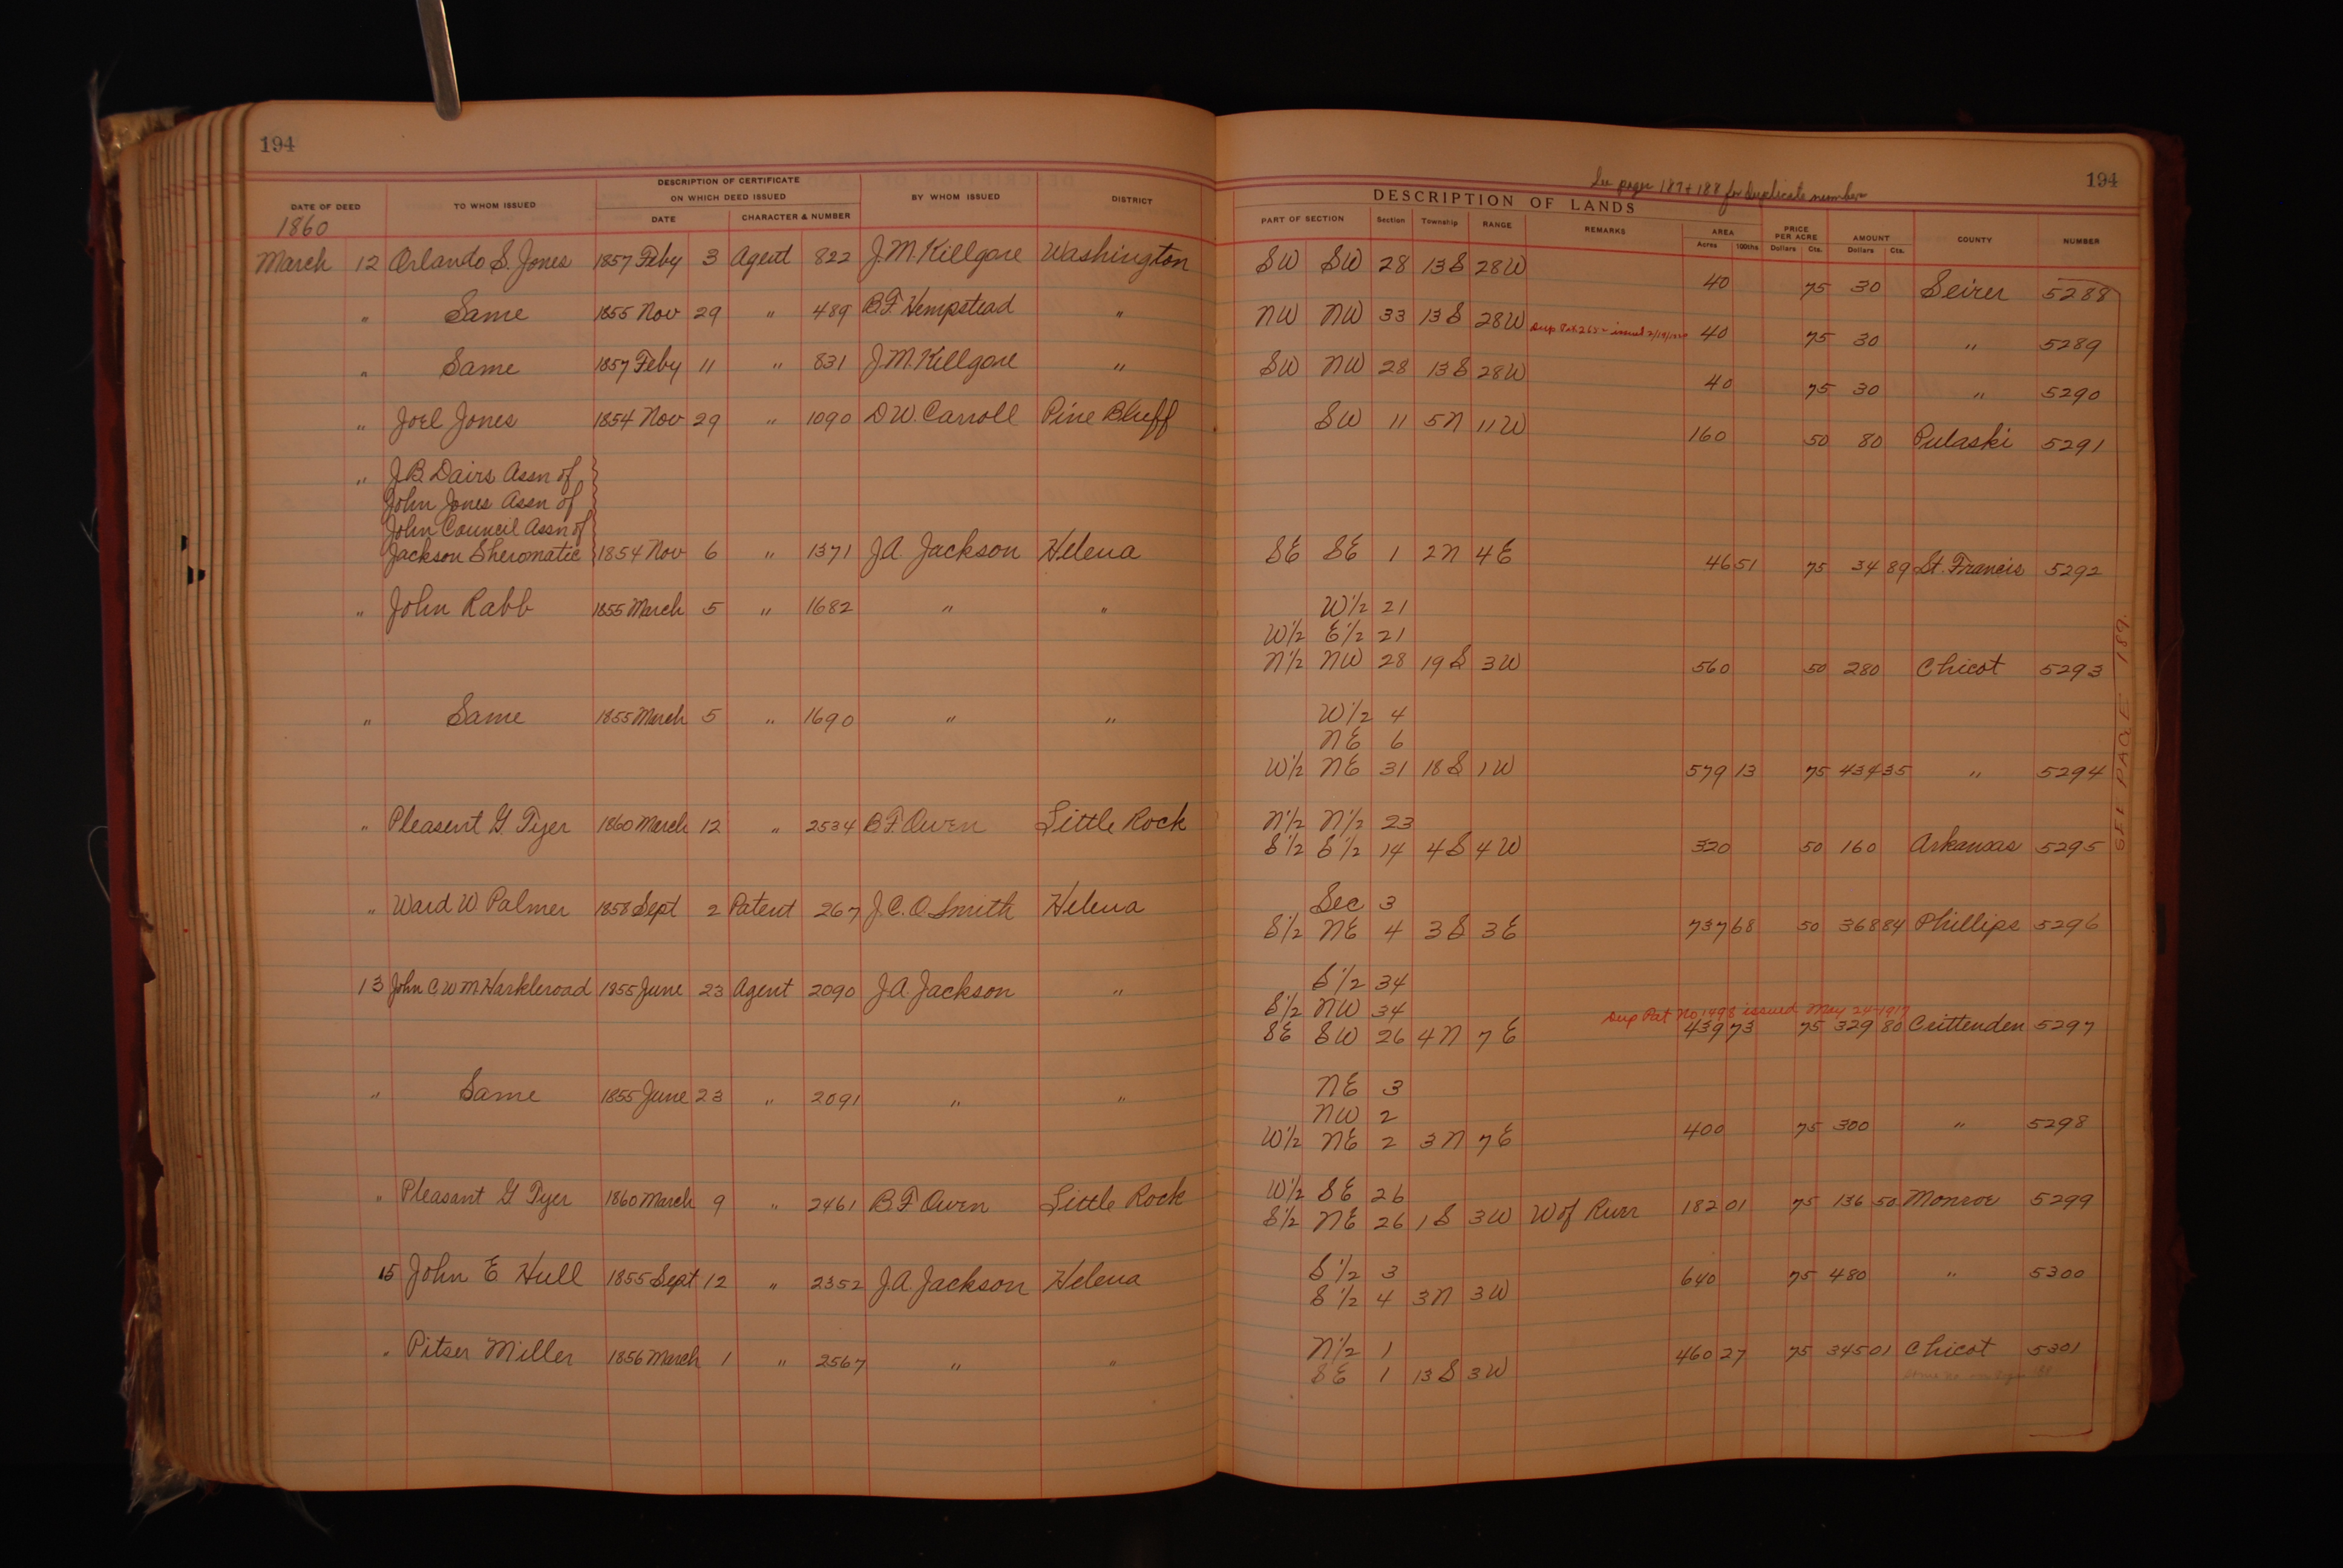 194
DESCRIPTION OF CERTIFICATE
ON WHICH DEED ISSUED
DATE OF DEED TO WHOM ISSUED DATE CHARACTER & NUMBER BY WHOM ISSUED DISTRICT
1860
March 12 Orlando S. Jones 1857 Feby 3 Agent 822 J.M. Killgore Washington
" Same 1855 Nov 29 " 489 B.F. Hempstead "
" Same 1857 Feby 11 " 831 J.M. Killgore "
" Joel Jones 1854 Nov 29 " 1090 D.W. Carroll Pine Bluff
" J.B. Davis Assn of
John Jones Assn of
John Council Assn of
Jackson Sheromatic 1854 Nov 6 " 1371 J.A. Jackson Helena
" John Rabb 1855 March 5 " 1682 " "
" Same 1855 March 5 " 1690 " "
" Pleasent G Tyer 1860 March 12 " 2534 B F Owen Little Rock
" Ward W. Palmer 1858 Sept 2 Patent 267 J.C.O. Smith Helena
13 John C W M Harkleroad 1855 June 23 Agent 2090 J.A. Jackson "
" Same 1855 June 23 " 2091 " "
" Pleasant G Tyer 1860 March 9 " 2461 B F Owen Little Rock
15 John E Hull 1855 Sept 12 " 2352 J.A. Jackson Helena
" Pitser Miller 1856 March 1 " 2567 " "
See pages 187 + 188 for duplicate number
194
DESCRIPTION OF LANDS
PART OF SECTION Section Township RANGE REMARKS AREA PRICE PER ACRE AMOUNT COUNTY NUMBER
Acres 100ths Dollars Cts. Dollars Cts.
SW SW 28 13S 28W 40 75 30 Seirer 5288
NW NW 33 13S 28W Dup Pat issued 40 75 30 " 5289
SW NW 28 13S 28W 40 75 30 " 5290
SW 11 5N 11W 160 50 80 Pulaski 5291
SE SE 1 2N 4E 46 51 75 34 89 St. Francis 5292
W½ 21
W½ E½ 21
N½ NW 28 19S 3W 560 50 280 Chicot 5293
W½ 4
NE 6
W½ NE 31 18S 1W 579 13 75 434 35 " 5294
N½ N½ 23
S½ S½ 14 4S 4W 320 50 160 Arkansas 5295
Sec 3
S½ NE 4 3S 3E 737 68 50 368 84 Phillips 5296
S½ 34
S½ NW 34
Dup Pat No 1498 issued May 24-1917
SE SW 26 4N 7E 439 73 75 329 80 Crittenden 5297
NE 3
NW 2
W½ NE 2 3N 7E 400 75 300 " 5298
W½ SE 26
S½ NE 26 1S 3W W of Rurr 182 01 75 136 50 Monroe 5299
S½ 3
S½ 4 3N 3W 640 75 480 " 5300
N½ 1
SE 1 13S 3W 460 27 75 345 01 Chicot 5301
SEE PAGE 187.